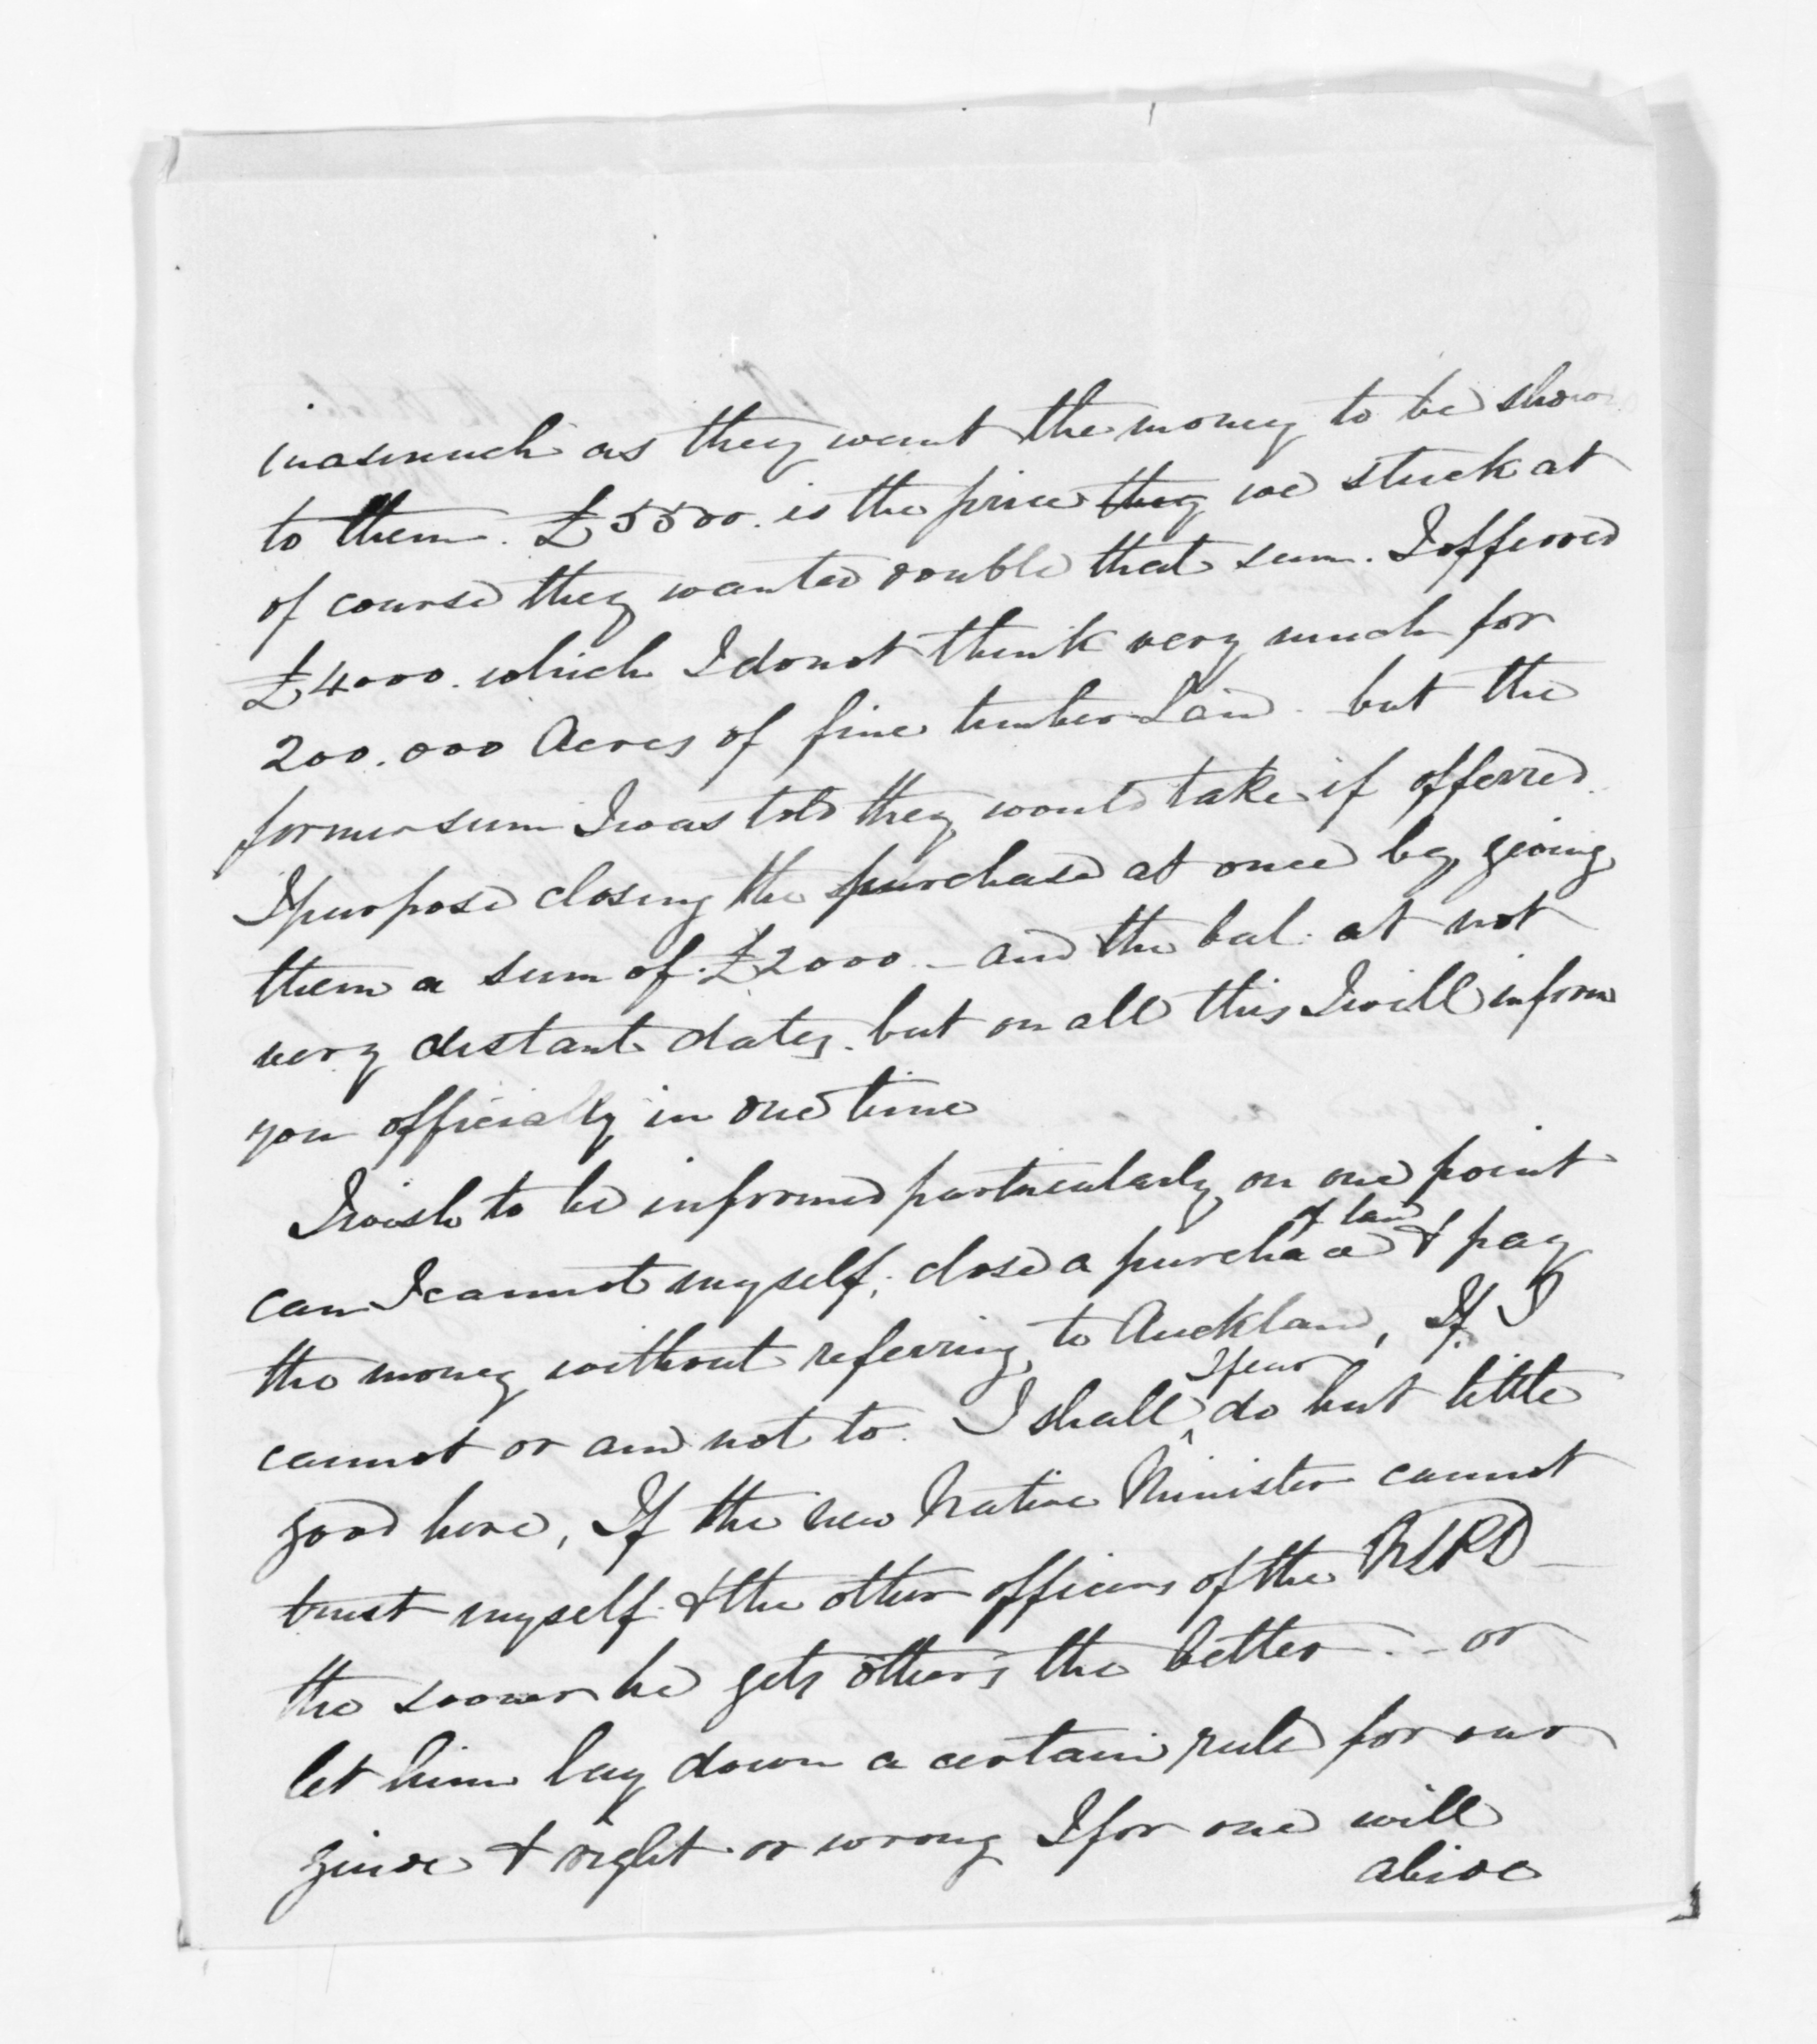 inasmuch as they want the money to be show
to them. £5500. is the price they we stuck at
of course they wanted double that sum. I offerred
£4000. which I do not think very much for
200.000 Acres of fine timber Land. but the
former sum I was told they would take if offerred.
I purpose closing the purchase at once by giving
them a sum of £2000 - and the bal. at not
very distant dates. but on all this I will inform
you officially in due time
I wish to be informed particularly on one point
of land
can I cannot myself, close a purchase & pay
the money without referring to Auckland, If I
I fear
cannot or am not to. I shall do but little
good here, If the new Native Minister cannot
trust myself & the other officers of the NLPD -
the sooner he gets others the better. - or
let him lay down a certain rule for our
guide & right or wrong I for one will
abide